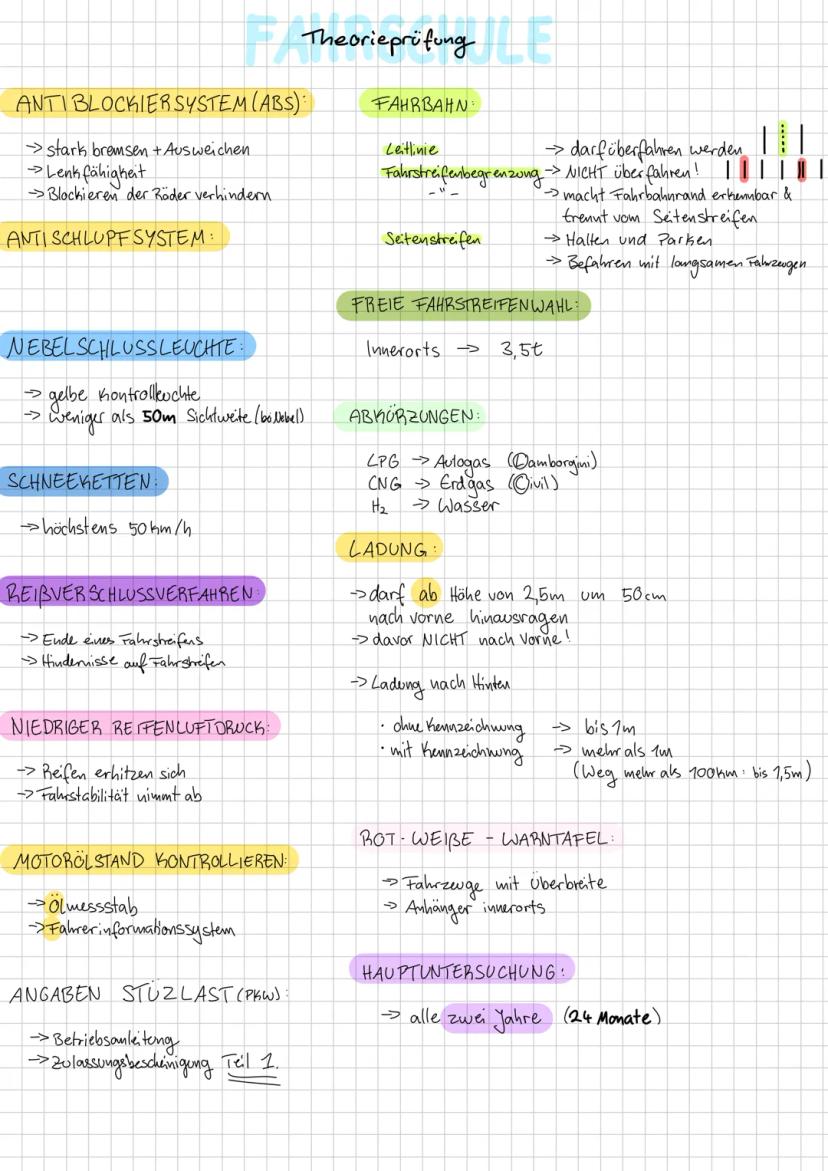 FAHRSCHULE
Theorieprüfung
ANTIBLOCKIERSYSTEM (ABS):
→ stark bremsen + Ausweichen
→ Lenkfähigkeit
→ Blockieren der Räder verhindern
ANTISCHLUPFSYSTEM:
NEBELSCHLUSSLEUCHTE:
→ gelbe Kontrollleuchte
→ weniger als 50m Sichtweite (bei Nebel)
SCHNEEKETTEN:
→ höchstens 50 km/h
REIßVERSCHLUSSVERFAHREN:
→ Ende eines Fahrstreifens
→ Hindernisse auf Fahrstreifen
NIEDRIGER REIFENLUFTDRUCK:
→ Reifen erhitzen sich
→ Fahrstabilität nimmt ab
MOTORÖLSTAND KONTROLLIEREN:
→ Ölmessstab
→ Fahrerinformationssystem
ANGABEN STÜZLAST (PKW):
→ Betriebsanleitung
→ Zulassungsbescheinigung Teil 1.
FAHRBAHN:
Leitlinie → darf überfahren werden
Fahrstreifenbegrenzung → NICHT überfahren!
-"- → macht Fahrbahnrand erkennbar &
trennt vom Seitenstreifen
Seitenstreifen → Halten und Parken
→ Befahren mit langsamen Fahrzeugen
FREIE FAHRSTREIFENWAHL:
Innerorts → 3,5t
ABKÜRZUNGEN:
LPG → Autogas (Lamborgini)
CNG → Erdgas (Civil)
H₂ → Wasser
LADUNG:
→ darf ab Höhe von 2,5m um 50cm
nach vorne hinausragen
→ davor NICHT nach Vorne!
→ Ladung nach Hinten
· ohne Kennzeichnung → bis 1m
· mit Kennzeichnung → mehr als 1m
(Weg mehr als 100km: bis 1,5m)
ROT-WEIßE-WARNTAFEL:
→ Fahrzeuge mit Überbreite
→ Anhänger innerorts
HAUPTUNTERSUCHUNG:
→ alle zwei Jahre (24 Monate)